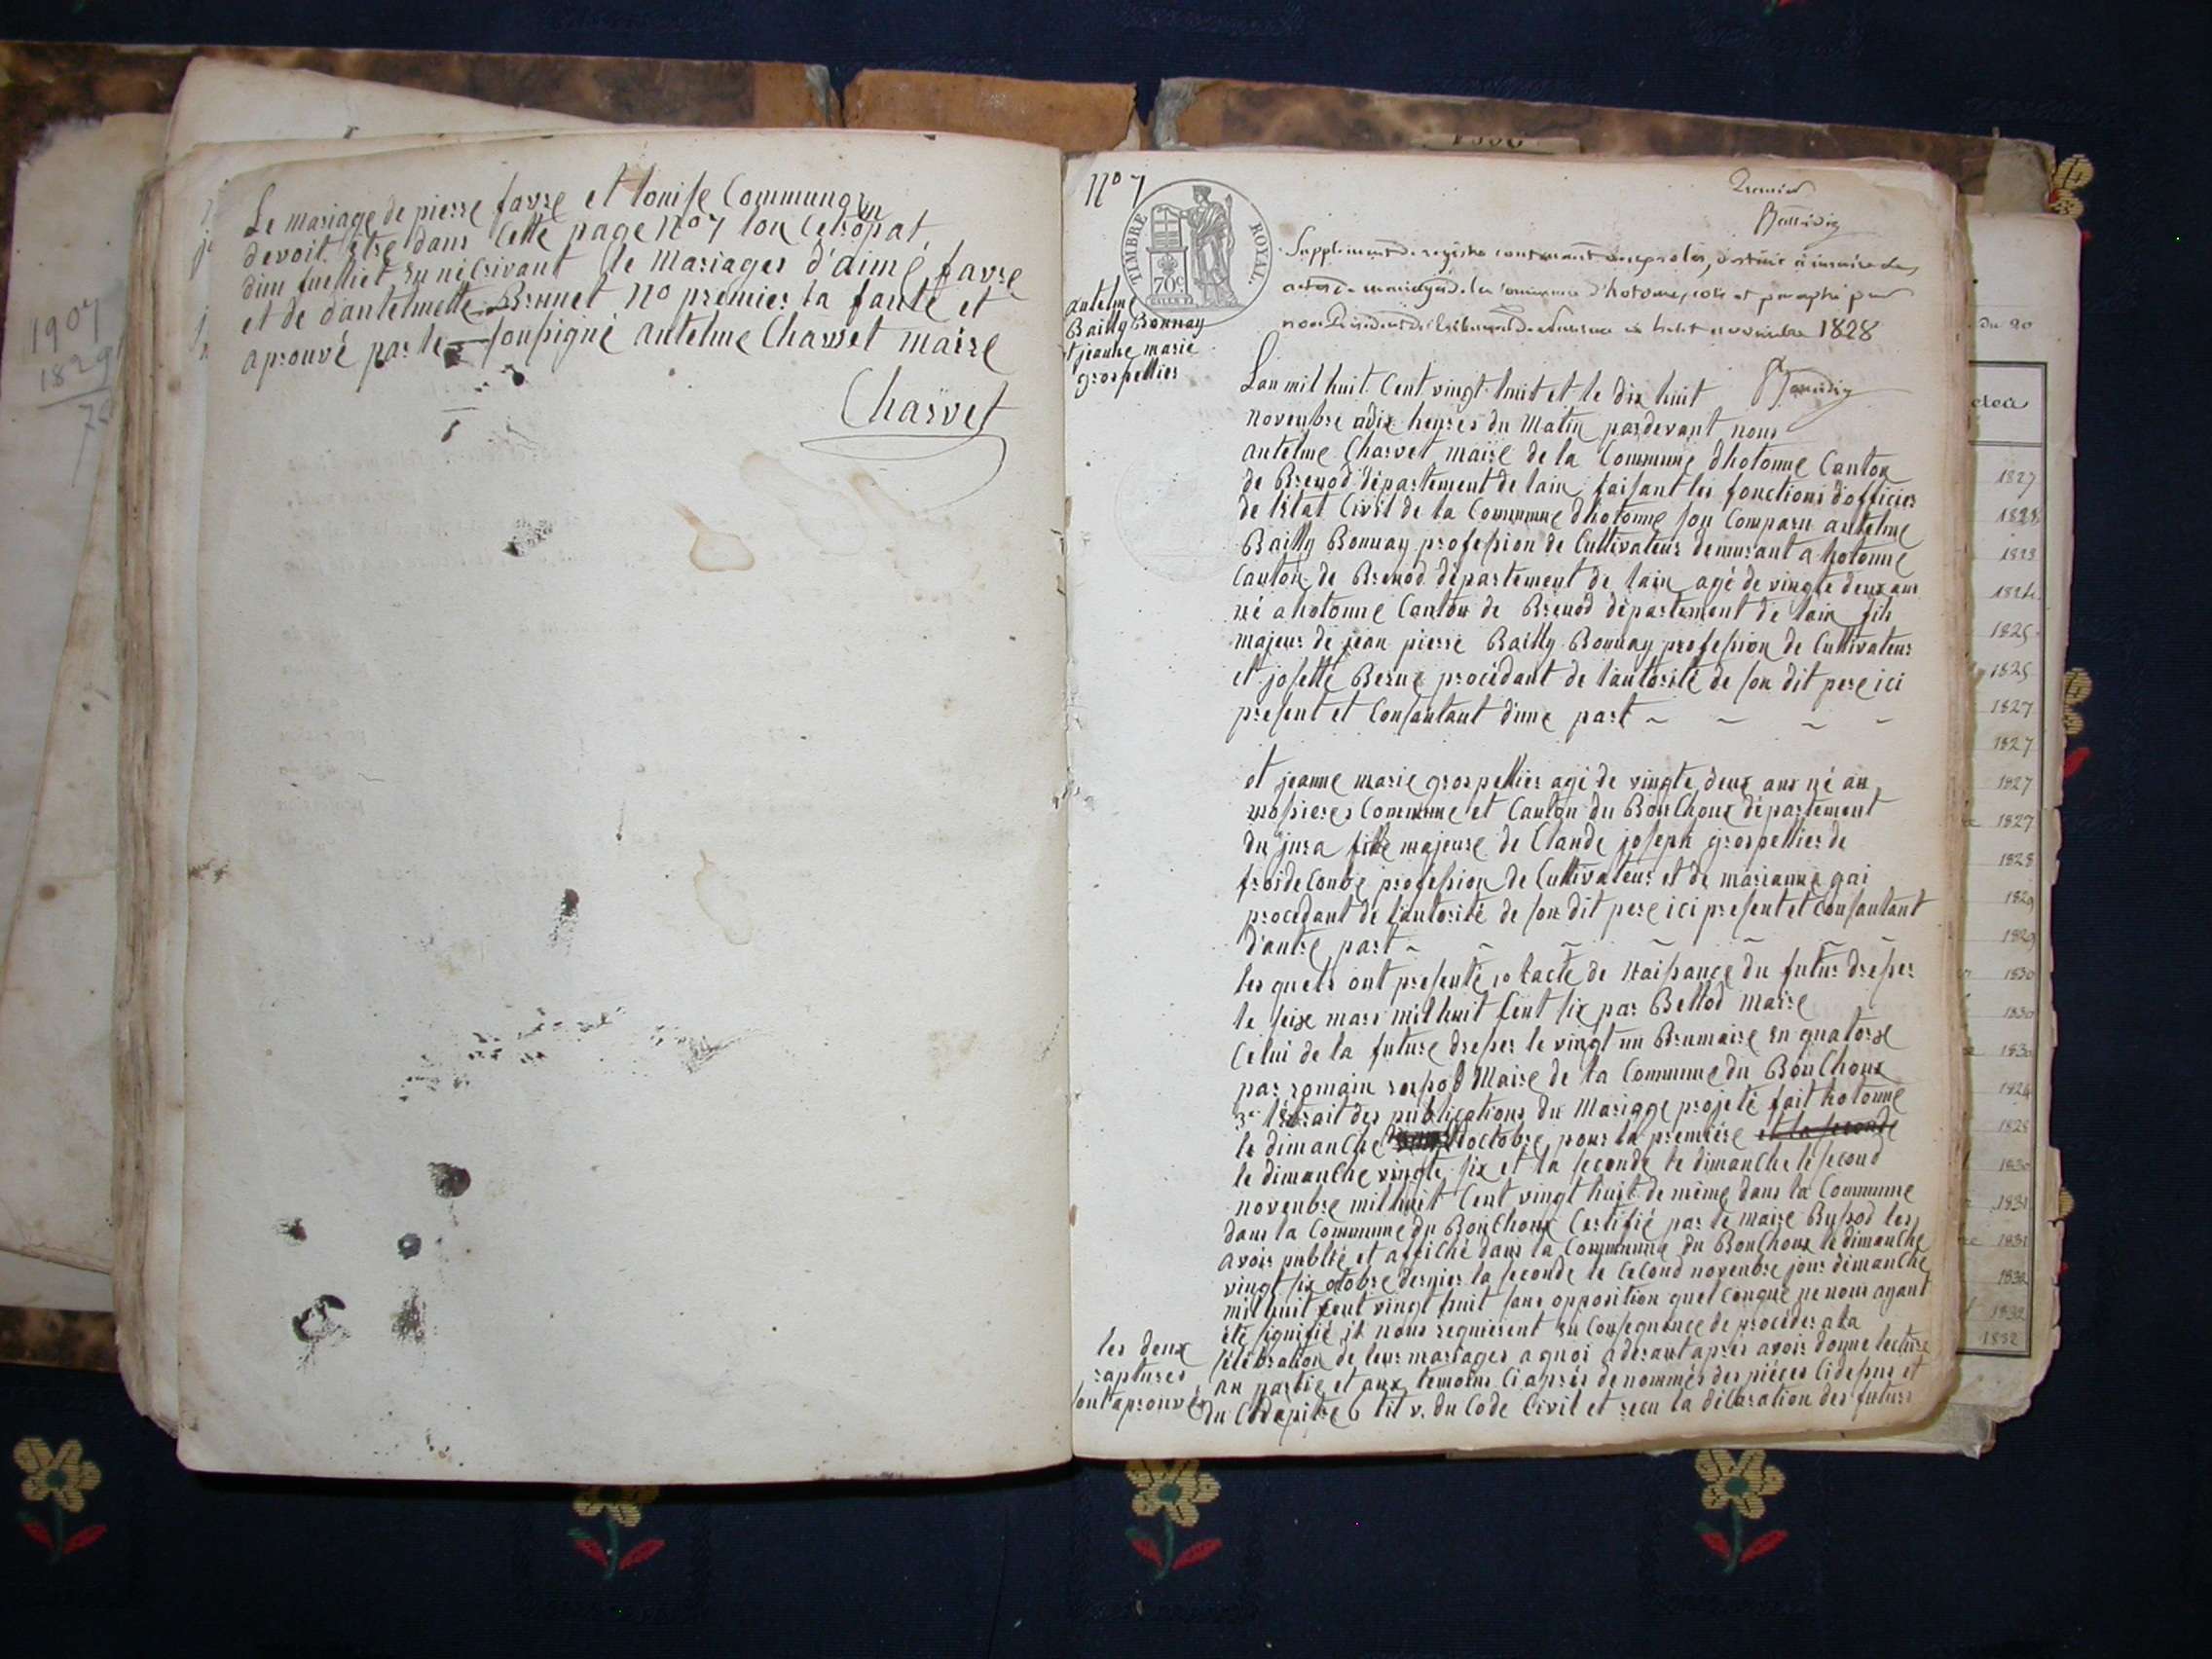 Le mariage de pierre favre et louise Commungon
devoit être dans cette page No 7
dun fuelliet en nécrivant le mariages d'aimé favre
et de dantelmette Brunet No premier la faute et
aprouvé par le soussigné antelme Charvet maire
Charvet
1907
1829
No 7
TIMBRE ROYAL
70c
antelme
Bailly Bonnay
et jeanne marie
grospellier
Premier
Supplement de registre contenant
actes de mariages de la commune d'hotonne, coté et paraphé par
nous novembre 1828
Lan mil huit Cent vingt huit et le dix huit
novenbre adix heures du Matin pardevant nous
antelme Charvet maire de la Commune dhotonne Canton
de Brenod département de lain faisant les fonctions dofficier
de létat Civil de la Commune dhotonne son Comparu antelme
Bailly Bonnay profession de Cultivateur demurant a hotonne
Canton de Brenod département de lain agé de vingte deux ans
né a hotonne Canton de Brenod département de lain fils
majeur de jean pierre Bailly Bonnay profession de Cultivateur
et josette Berne procédant de lautorité de son dit pere ici
present et Consantant dune part
et jeanne marie grospellier agé de vingte deux ans né au
mosieres Commune et Canton du BonChoux département
du jura fille majeure de Claude joseph grospellier de
froideConbe profession de Cultivateur et de marianne gai
procedant de lautorité de son dit pere ici present et Consantant
d'autre part
les quels ont presenté 10 lacte de Naissance du futur dresser
le seize mars mil huit Cent six par Bellod maire
Celui de la future dresser le vingt un Brumaire en quatorse
par romain Maire de la Commune du BonChoux
3º lextrait des publications du Mariage projeté fait hotonne
le dimanche octobre pour la première et la seconde
le dimanche vingte six et la seconde le dimanche le second
novenbre mil huit Cent vingt huit de même dans la Commune
dans la Commune du BonChoux Certifié par le maire les
avoir publié et affiché dans la Commune du BonChoux le dimanche
vingt six otobre dernier la seconde le cecond novenbre jour dimanche
mil huit Cent vingt huit sans opposition quel conque ne nous ayant
été signifié il nous requierent en Consequence de procéder a la
célébration de leur mariages a quoi aderant aprés avoir donne lecture
au partie et aux temoins Ci aprés denommés des piéces Cidessus et
du Chapitre 6 tit v. du Code Civil et recu la déclaration des futurs
les deux
raptures
sont aprouvé
du 20
1827
1828
1823
1824
1825
1825
1827
1827
1827
1827
1828
1829
1829
1830
1830
1830
1826
1828
1830
1831
1831
1832
1832
1832